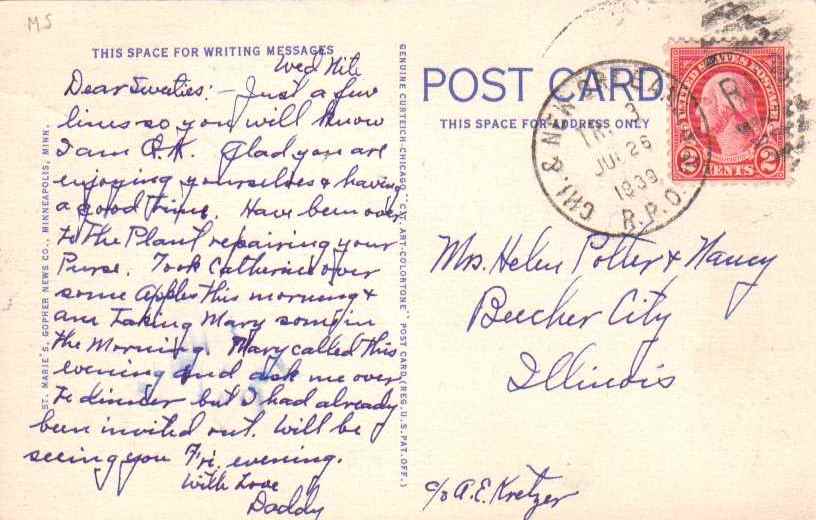 MS
THIS SPACE FOR WRITING MESSAGES
Wed Nite
Dear Sweeties:- Just a few
lines so you will know
I am O.K. Glad you are
enjoying yourselves & having
a good time. Have been over
to the Plant repairing your
Purse. Took Catherine over
some Apples this morning &
am taking Mary some in
the Morning. Mary called this
evening and ask me over
to dinner but I had already
been invited out. Will be
seeing you Fri. evening.
With Love
Daddy
ST. MARIE'S, GOPHER NEWS CO., MINNEAPOLIS, MINN.
GENUINE CURTEICH-CHICAGO "C.T. ART-COLORTONE" POST CARD (REG. U.S. PAT. OFF.)
POST CARD
THIS SPACE FOR ADDRESS ONLY
CHI. & NEW
TR. 3
JUL 26
1939
R.P.O.
UNITED STATES POSTAGE
2 CENTS 2
Mrs. Helen Potter & Nancy
Beecher City
Illinois
c/o A.E. Kretzer